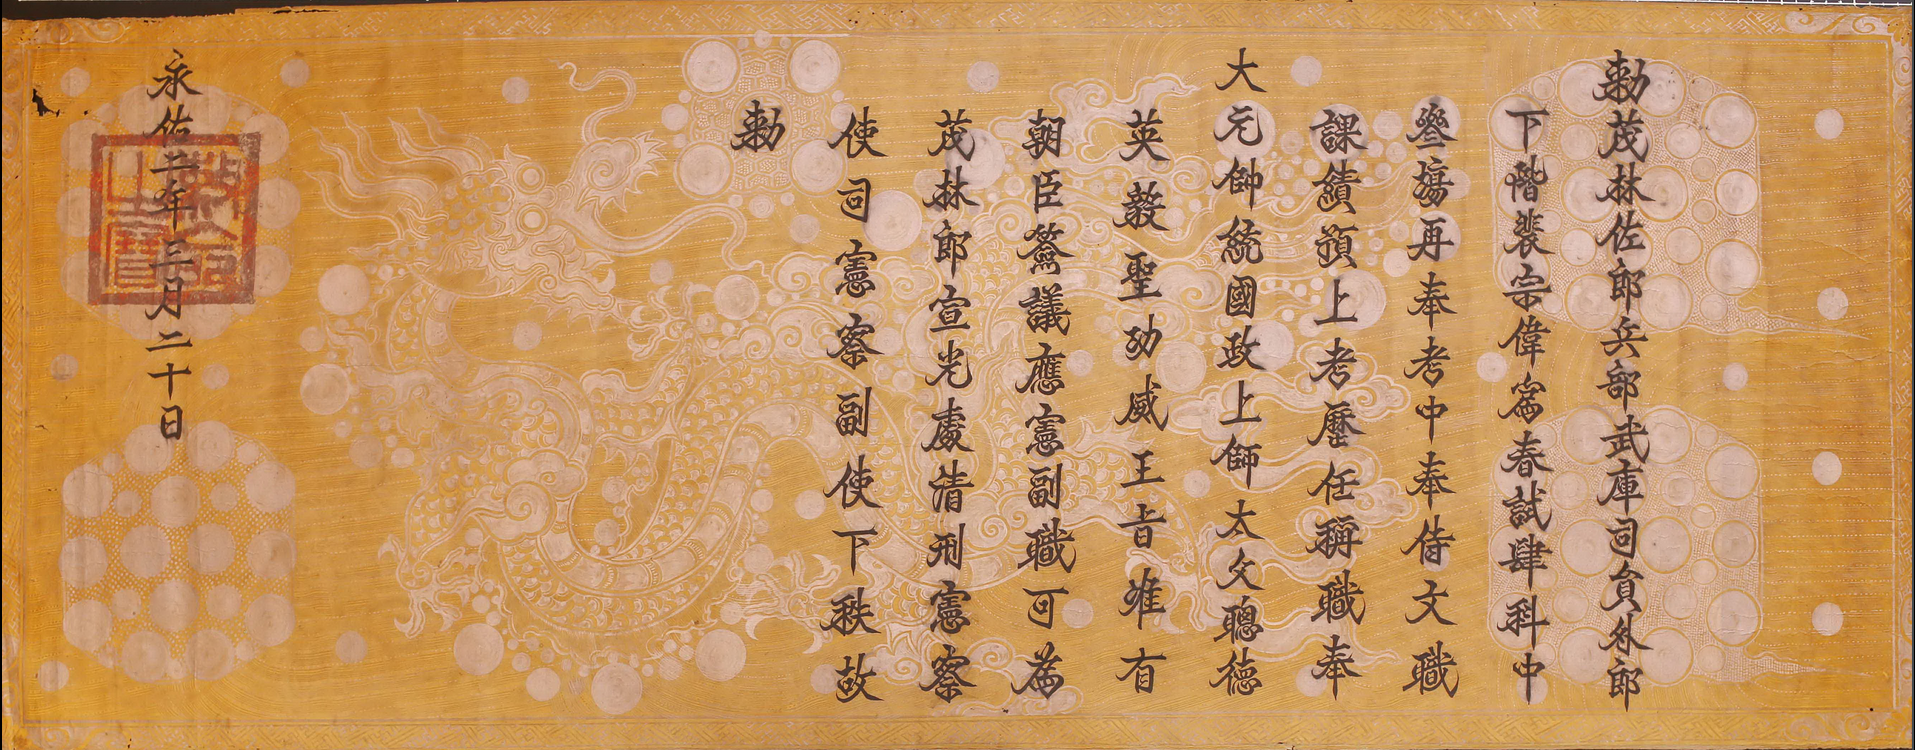 勅茂林佐郎兵部武庫司員外郎
下階裴宗偉爲春試肆科中
叄塲再奉考中奉侍文職
課績預上考歷任稱職奉
大元帥統國政上師太父聰德
英毅聖功威王旨准有
朝臣簽議應憲副職可為
茂林郎宣光處清刑憲察
使司憲察副使下秩故
勅
永佑年三月二十日
敕命之寶